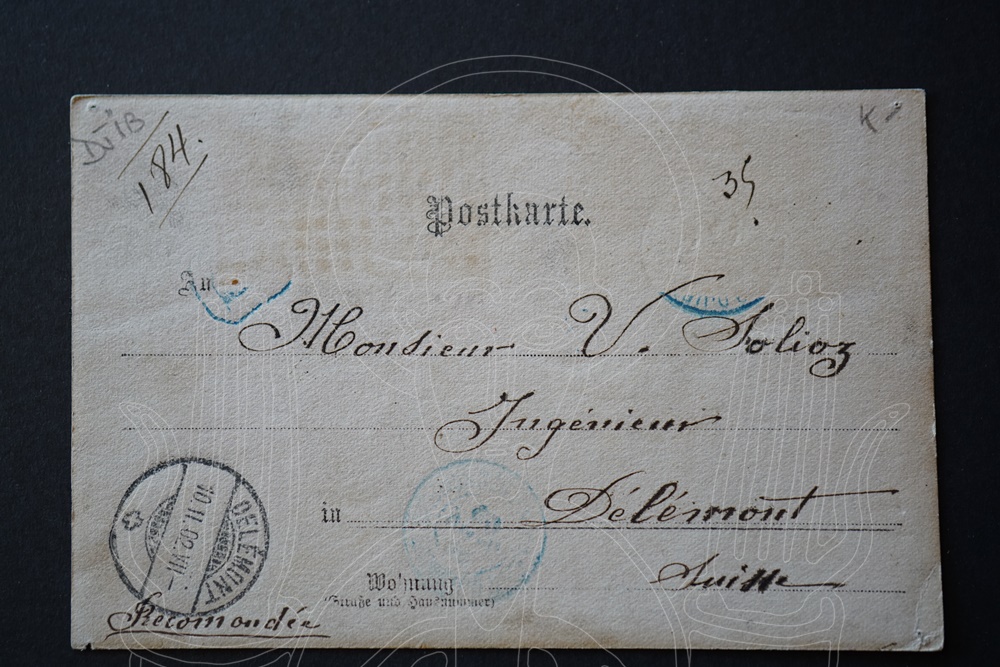 184.
K
35
Postkarte.
An
Monsieur V. Folioz
Ingénieur
in Délémont
Suisse
Wohnung
(Straße und Hausnummer)
DELÉMONT
10.II.02.VII-
Recomondée